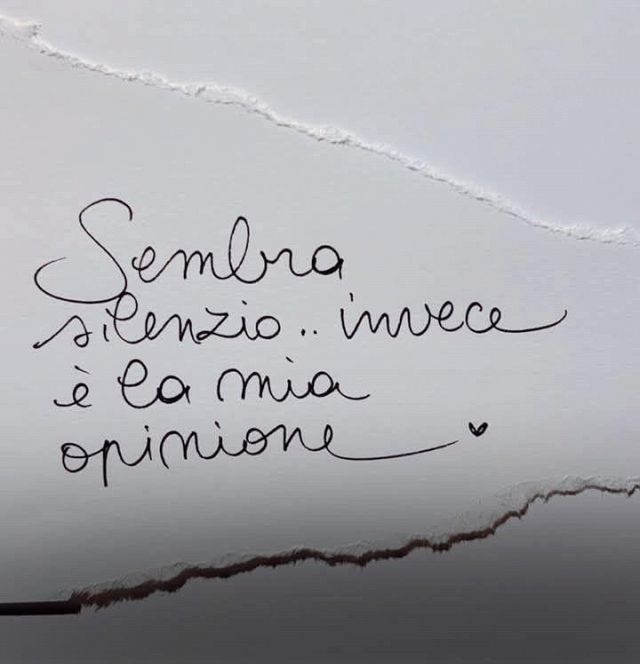 Sembra
silenzio.. invece
è la mia
opinione